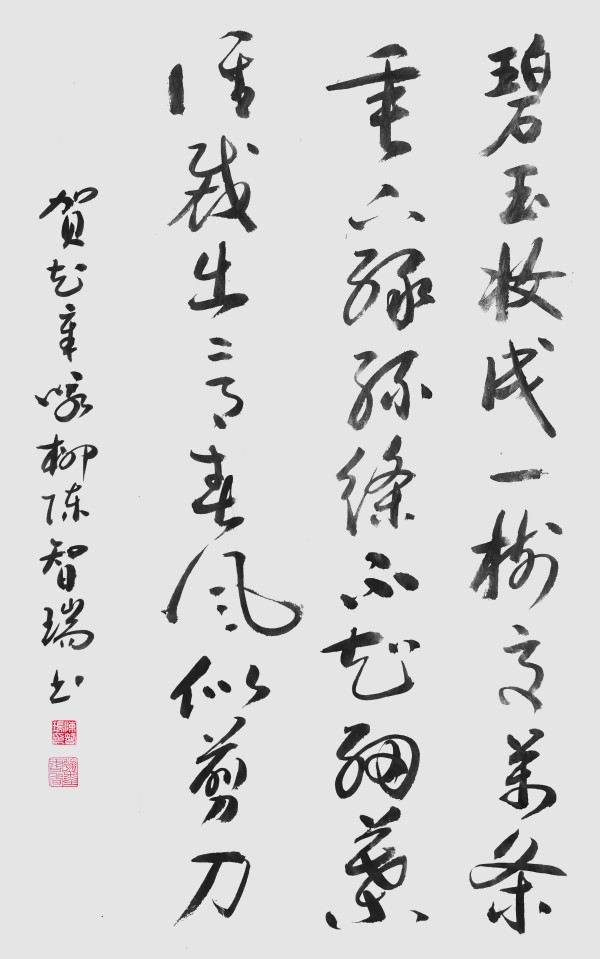 碧玉妆成一樹高萬条
垂下綠絲絛不知細葉
誰裁出二月春風似剪刀
賀知章咏柳陈智瑞书